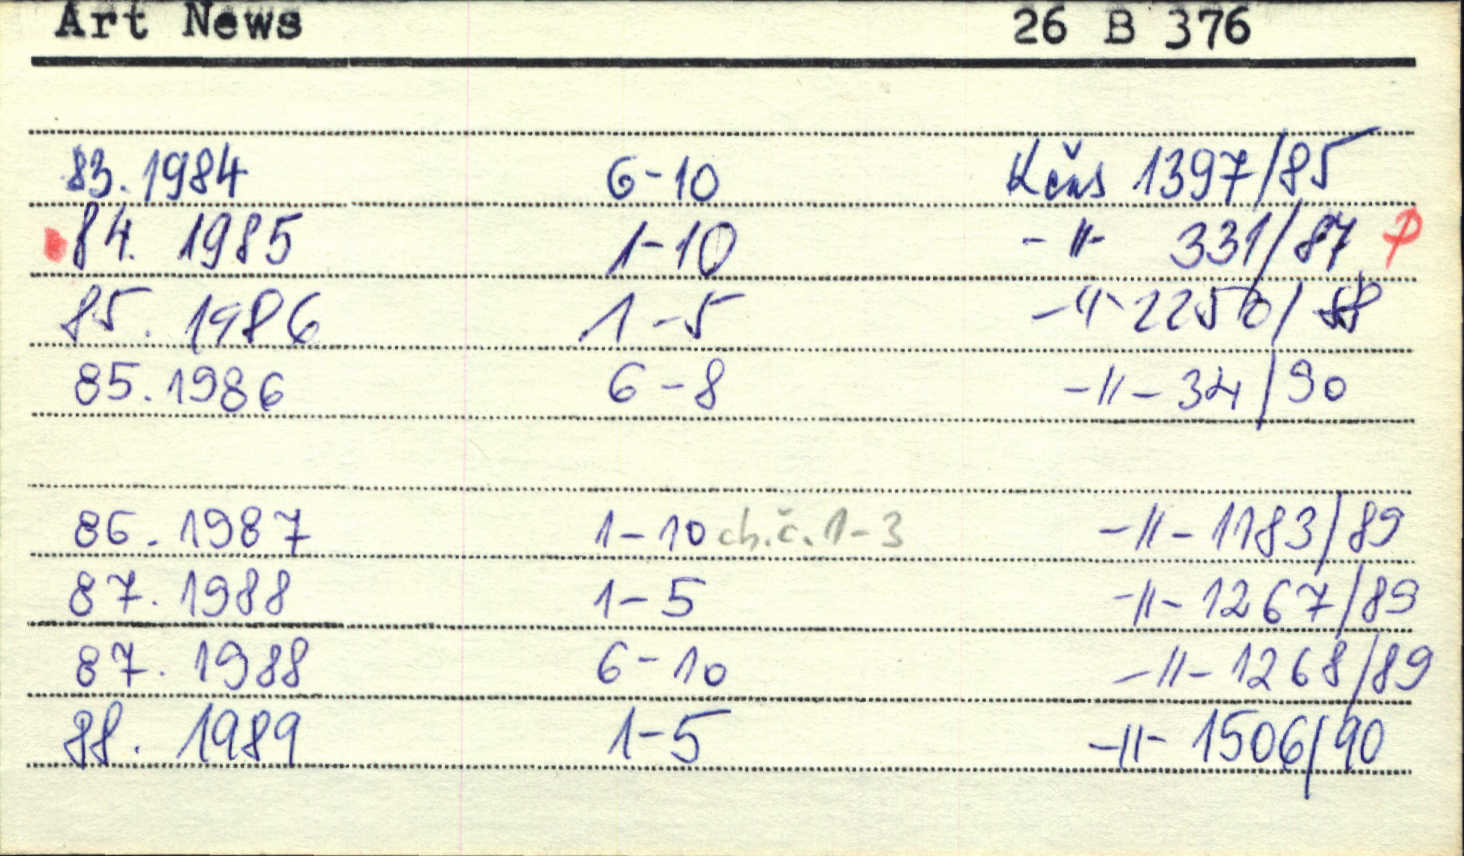 Art News 26 B 376
83. 1984 6-10 Kčas 1397/85
84. 1985 1-10 -"- 331/87 P
85. 1986 1-5 -"- 2250/88
85. 1986 6-8 -"- 34/90
86. 1987 1-10 ch.č. 1-3 -"- 1183/89
87. 1988 1-5 -"- 1267/89
87. 1988 6-10 -"- 1268/89
88. 1989 1-5 -"- 1506/90